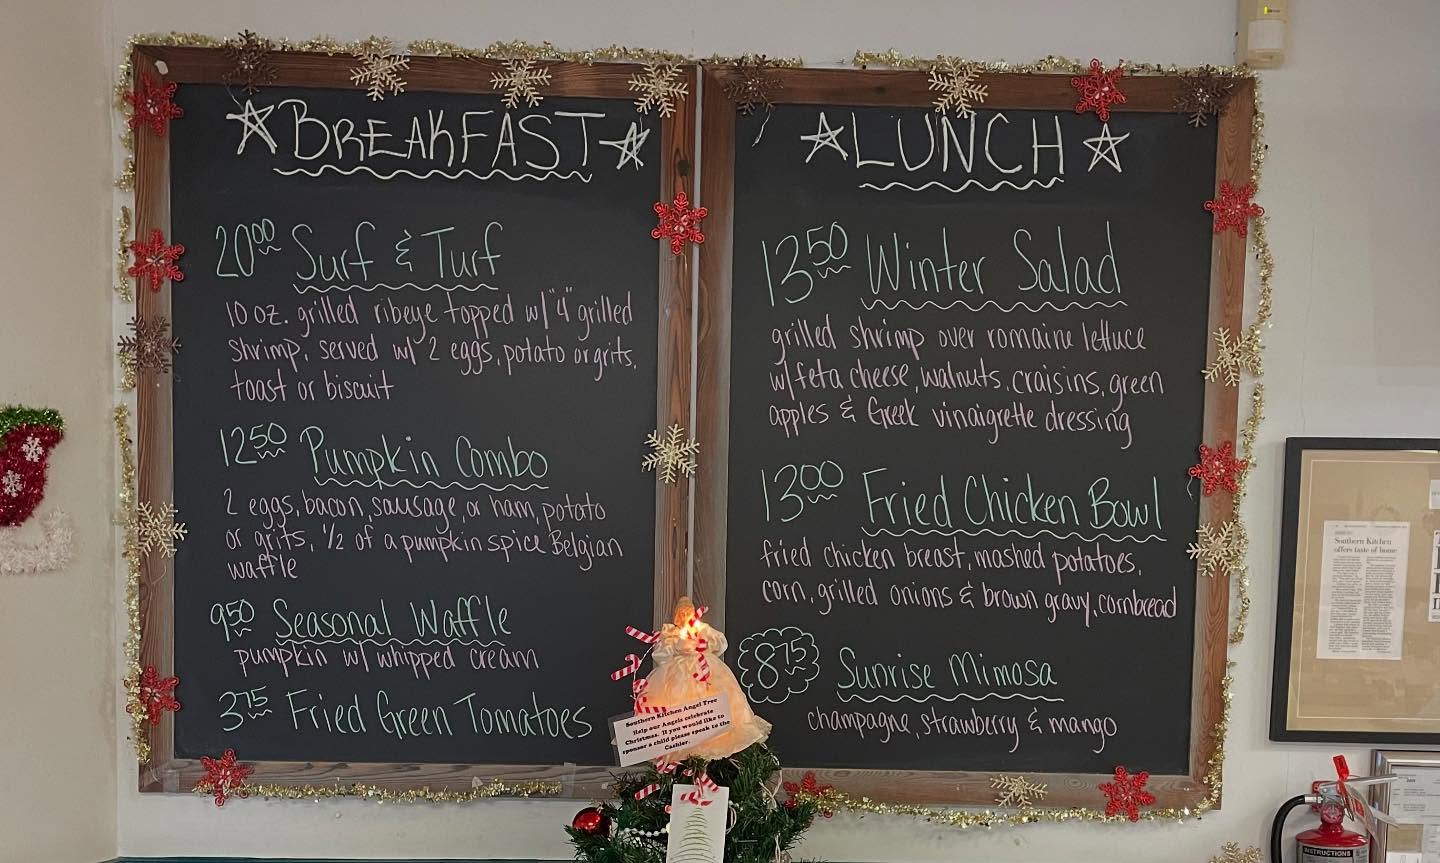 BREAKFAST
20⁰⁰ Surf & Turf
10 oz. grilled ribeye topped w/ "4" grilled
shrimp, served w/ 2 eggs, potato or grits,
toast or biscuit
12⁵⁰ Pumpkin Combo
2 eggs, bacon, sausage, or ham, potato
or grits, 1/2 of a pumpkin spice Belgian
waffle
9⁵⁰ Seasonal Waffle
pumpkin w/ whipped cream
3⁷⁵ Fried Green Tomatoes
LUNCH
13⁵⁰ Winter Salad
grilled shrimp over romaine lettuce
w/ feta cheese, walnuts, craisins, green
apples & Greek vinaigrette dressing
13⁰⁰ Fried Chicken Bowl
fried chicken breast, mashed potatoes,
corn, grilled onions & brown gravy, cornbread
8⁷⁵ Sunrise Mimosa
champagne, strawberry & mango
Southern Kitchen Angel Tree
Help our Angels celebrate
Christmas. If you would like to
sponsor a child please speak to the
Cashier.
Southern Kitchen
offers taste of home
INSTRUCTIONS